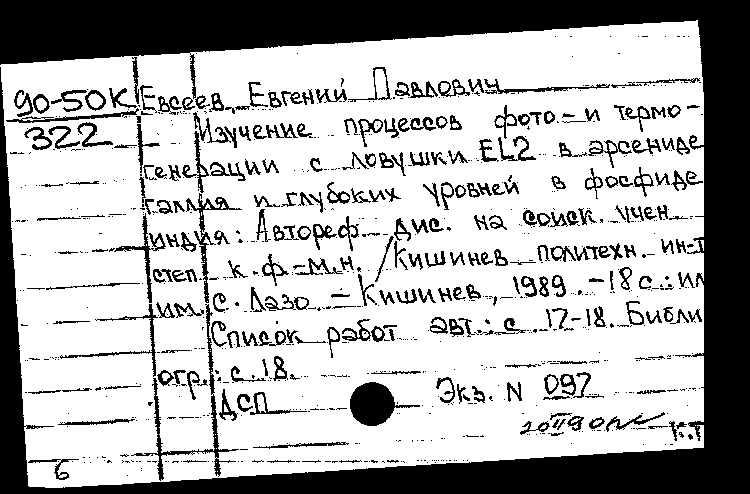 90-50К Евсеев, Евгений Павлович
322 Изучение процессов фото- и термо-
генерации с ловушки EL2 в арсениде
галлия и глубоких уровней в фосфиде
индия: Автореф. дис. на соиск. учен.
степ. к.ф.-м.н. / Кишинев. политехн. ин-т
им. С. Лазо. - Кишинев, 1989. - 18 с.: ил
Список работ авт.: с. 17-18. Библи
огр.: с. 18.
ДСП Экз. N 097
К.Т
6